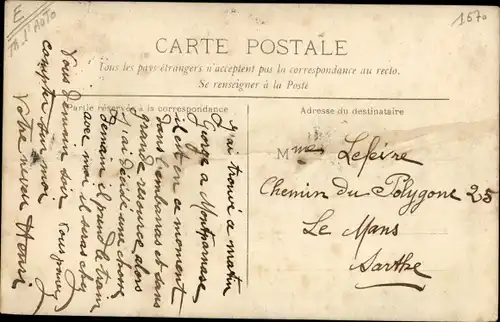 E
Th. l'Auto
1570
CARTE POSTALE
Tous les pays étrangers n'acceptent pas la correspondance au recto.
Se renseigner à la Poste
Partie réservée à la correspondance
Adresse du destinataire
J'ai trouvé ce matin
George a Montparnasse
il est en ce moment
dans l'embarras et sans
grande ressource alors
j'ai décidé une chose
demain il prend le train
avec moi il sera chez
vous demain soir vous pouvez
compter sur moi
Votre neveu Henri
Mme Lefèvre
Chemin du Polygone 25
Le Mans
Sarthe